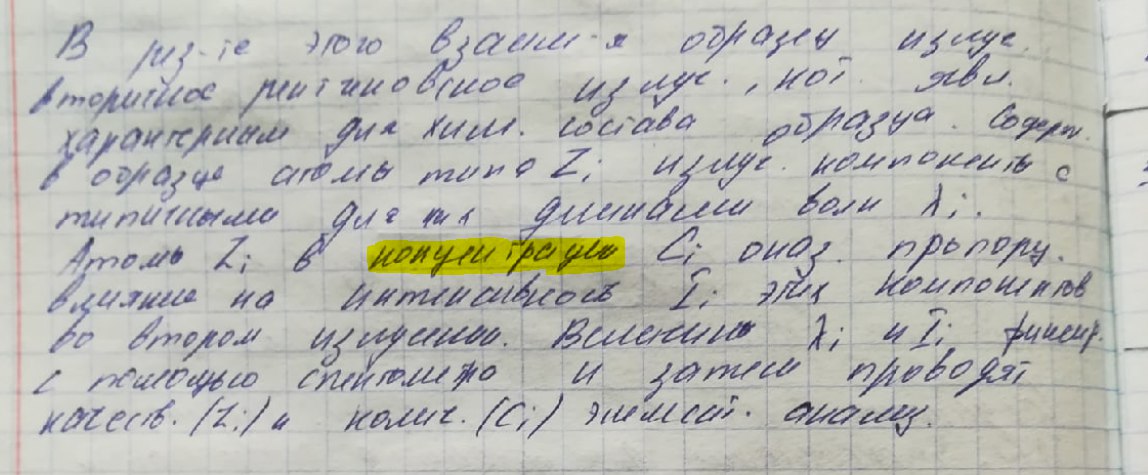 В рез-те этого взаим-я образец излуч.
вторичное рентгеновское излуч., кот. явл.
характерным для хим. состава образца. Содерж.
в образце атомы типа Zi излуч. компоненты с
типичными для них длинами волн λi.
Атомы Zi в концентрации Ci оказ. пропорц.
влияние на интенсивность Ii этих компонентов
во втором излучении. Величины λi и Ii фиксир.
с помощью спектрометра и затем проводят
качеств. (Zi) и колич. (Ci) элемент. анализ.